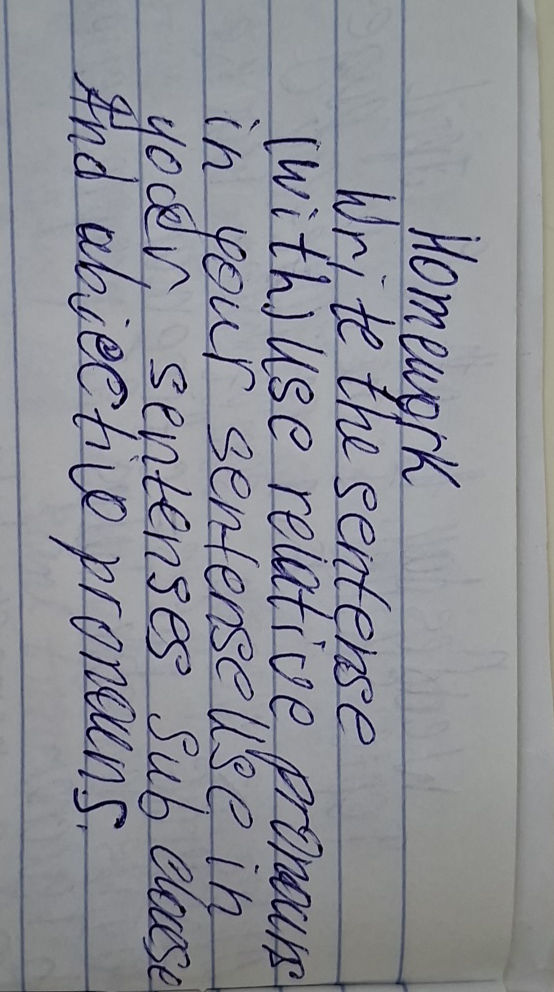 Homework
Write the sentense
(with) use relative pronouns
in your sentense use in
yoor sentenses sub clouse
And abjective pronouns.